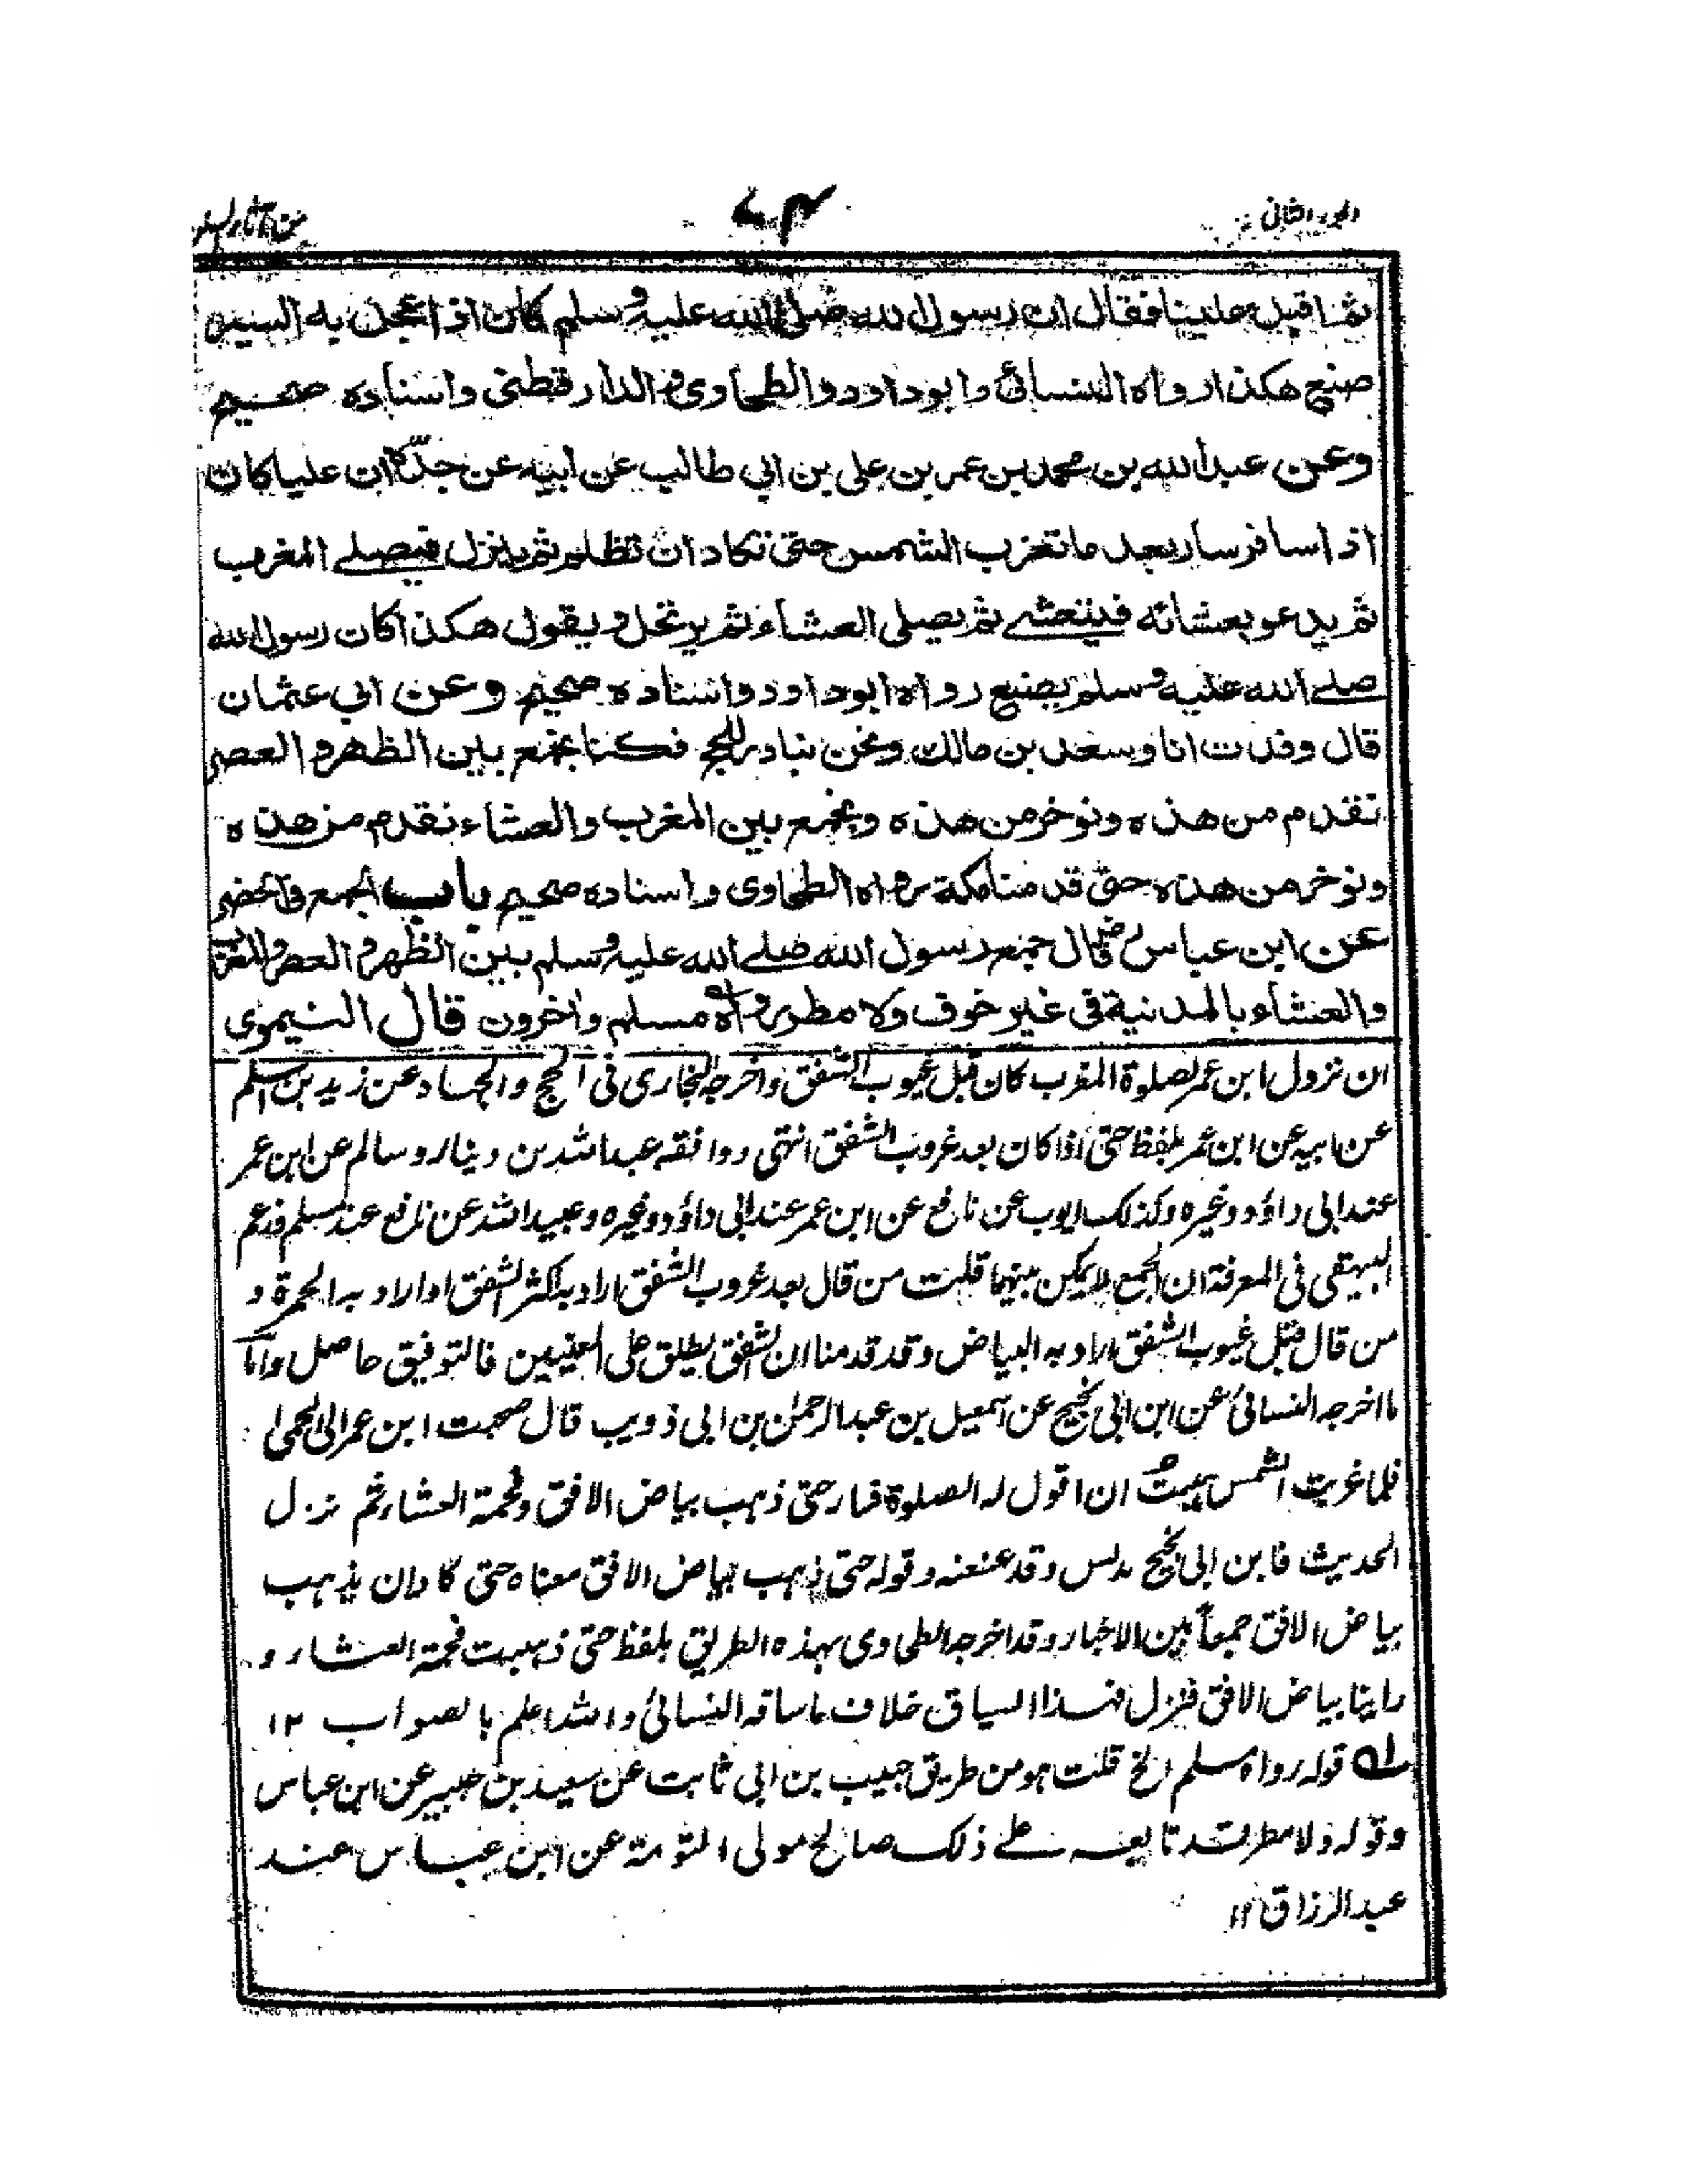 الجزء الثانی
٧٤
من آثار السنن
ثم اقبل علینا فقال ان رسول الله صلی الله علیه وسلم کان اذا عجل به السیر
صنع هکذا رواه النسائی وابوداود والطحاوی والدارقطنی واسناده صحیح
وعن عبدالله بن محمد بن عمر بن علی بن ابی طالب عن ابیه عن جدّه ان علیا کان
اذا سافر سار بعد ما تغرب الشمس حتی تکاد ان تظلم ثم ینزل فیصلے المغرب
ثم یدعو بعشائه فیتعشے ثم یصلی العشاء ثم یرتحل ویقول هکذا کان رسول الله
صلے الله علیه وسلم یصنع رواه ابوداود واسناده صحیح وعن ابی عثمان
قال وفدت انا وسعد بن مالك ونحن نبادر للحج فکنا نجمع بین الظهر والعصر
نقدم من هذه ونوخر من هذه ونجمع بین المغرب والعشاء نقدم من هذه
ونوخر من هذه حتی قدمنا مکة رواه الطحاوی واسناده صحیح باب الجمع فی الحضر
عن ابن عباس رض قال جمع رسول الله صلے الله علیه وسلم بین الظهر والعصر والمغرب
والعشاء بالمدینة فی غیر خوف ولا مطر رواه مسلم واخرون قال النیموی
ان نزول ابن عمر لصلوة المغرب کان قبل غیوب الشفق واخرجه البخاری فی الحج والجهاد عن زید بن اسلم
عن ابیه عن ابن عمر بلفظ حتی اذا کان بعد غروب الشفق انتهی ووافقه عبدالله بن دینار وسالم عن ابن عمر
عند ابی داؤد وغیره وکذلک ایوب عن نافع عن ابن عمر عند ابی داؤد وغیره وعبیدالله عن نافع عند مسلم فزعم
البیهقی فی المعرفة ان الجمع لا یمکن بینهما قلت من قال بعد غروب الشفق اراد به اکثر الشفق او اراد به الحمرة و
من قال قبل غیوب الشفق اراد به البیاض وقد قدمنا ان الشفق یطلق علی المعنیین فالتوفیق حاصل واما
ما اخرجه النسائی عن ابن ابی نجیح عن اسمعیل بن عبدالرحمٰن بن ابی ذویب قال صحبت ابن عمر الی الحمی
فلما غربت الشمس هبت ان اقول له الصلوة فسار حتی ذهب بیاض الافق وفحمة العشاء ثم نزل
الحدیث فابن ابی نجیح مدلس وقد عنعنه وقوله حتی ذهب بیاض الافق معناه حتی کاد ان یذهب
بیاض الافق جمعاً بین الاخبار وقد اخرجه الطحاوی بهذه الطریق بلفظ حتی ذهبت فحمة العشاء و
راینا بیاض الافق فنزل فهذا السیاق خلاف ما ساقه النسائی والله اعلم بالصواب ١٢
له قوله رواه مسلم الخ قلت هو من طریق حبیب بن ابی ثابت عن سعید بن جبیر عن ابن عباس
وقوله ولا مطر قد تابعه علے ذلک صالح مولی التوءمة عن ابن عباس عند
عبدالرزاق ١٢